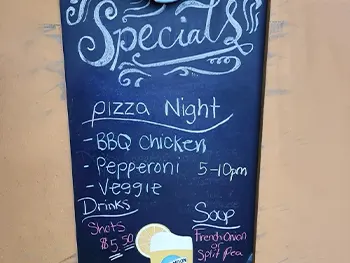 Specials
pizza Night
- BBQ Chicken
- Pepperoni 5-10pm
- Veggie
Drinks
Shots
$5.50
Soup
French Onion
or
Split Pea